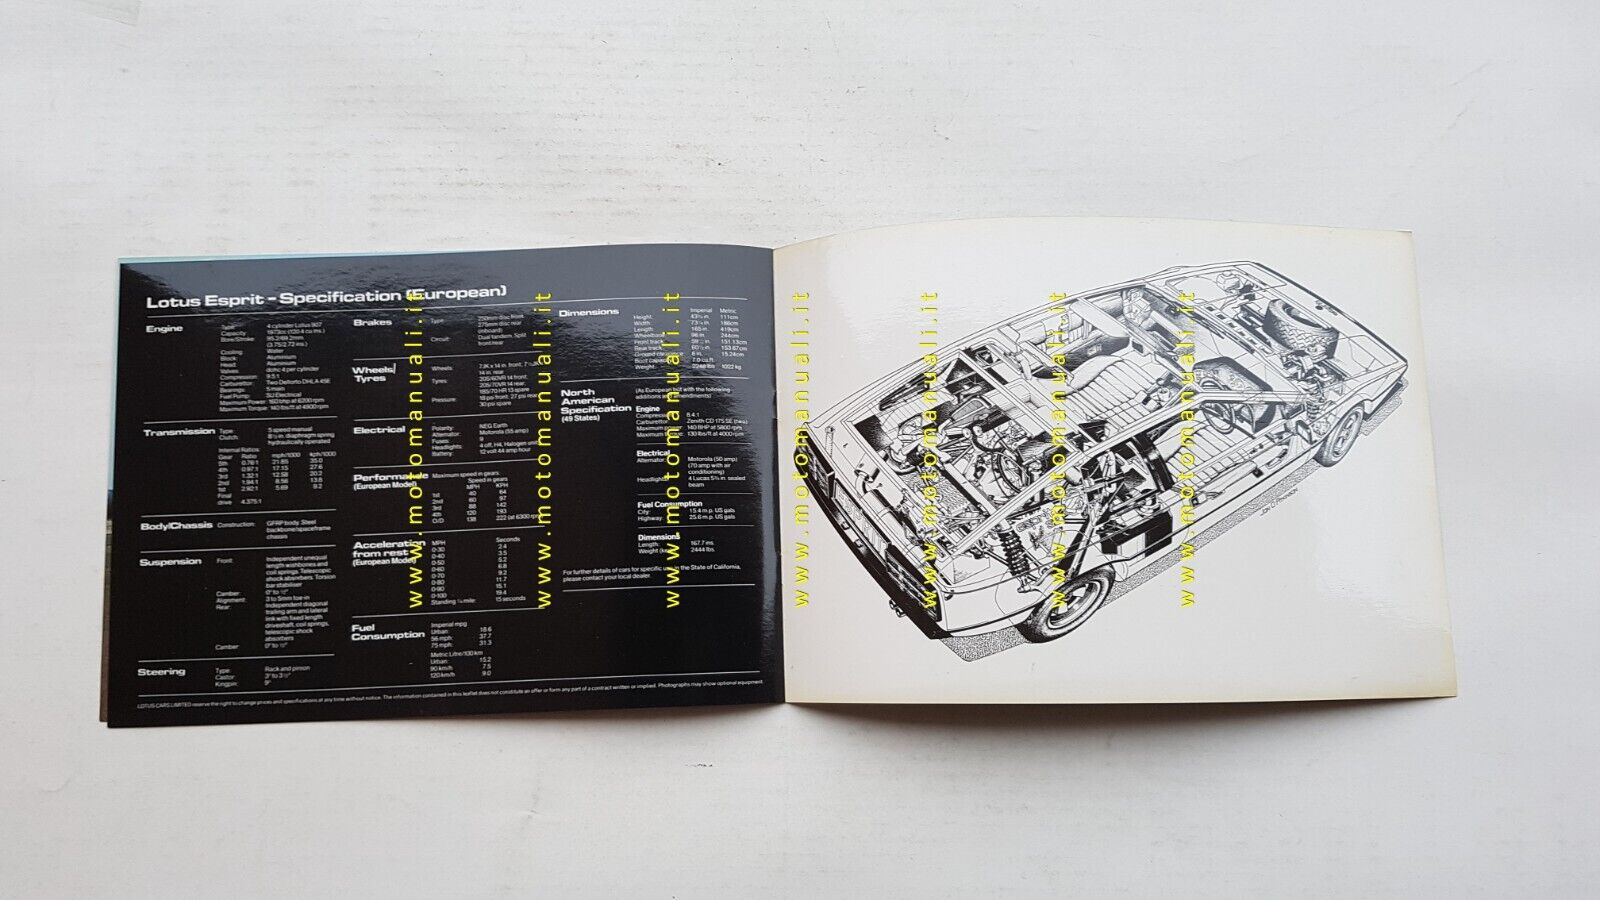 Lotus Esprit - Specification (European)
Engine
Type 4 cylinder Lotus 907
Capacity 1973cc (120.4 cu ins.)
Bore/Stroke 95.2/69.2mm
(3.75/2.72 ins.)
Cooling Water
Block: Aluminium
Head: Aluminium
Valves dohc 4 per cylinder
Compression 9.5:1
Carburettor: Two Dellorto DHLA 45E
Bearings: 5 main
Fuel Pump: SU Electrical
Maximum Power: 160 bhp at 6200 rpm
Maximum Torque: 140 lbs/ft at 4900 rpm
Transmission
Type 5 speed manual
Clutch 8½ in. diaphragm spring
hydraulically operated
Internal Ratios:
Gear Ratio mph/1000 kph/1000
5th 0.76:1 21.85 35.0
4th 0.97:1 17.15 27.6
3rd 1.32:1 12.58 20.2
2nd 1.94:1 8.56 13.8
1st 2.92:1 5.69 9.2
Final
drive 4.375:1
Body/Chassis
Construction: GFRP body. Steel
backbone/spaceframe
chassis
Suspension
Front Independent unequal
length wishbones and
coil springs. Telescopic
shock absorbers. Torsion
bar stabiliser
Camber: 0° to ½°
Alignment: 3 to 5mm toe-in
Rear: Independent diagonal
trailing arm and lateral
link with fixed length
driveshaft, coil springs,
telescopic shock
absorbers
Camber 0° to ½°
Steering
Type Rack and pinion
Castor: 3° to 3½°
Kingpin: 9°
Brakes
Type: 250mm disc front
275mm disc rear
(inboard)
Circuit: Dual tandem. Split
front/rear
Wheels/
Tyres
Wheels
14 in. rear
Tyres: 205/60VR 14 front,
205/70VR 14 rear,
185/70 HR 13 spare
Pressure: 18 psi front; 27 psi rear
30 psi spare
Electrical
Polarity: NEG Earth
Alternator: Motorola (55 amp)
Fuses: 9
Headlights: 4 off, H4, Halogen units
Battery: 12 volt 44 amp hour
Performance
(European Model)
Maximum speed in gears.
Speed in gears
MPH KPH
1st 40 64
2nd 60 97
3rd 88 142
4th 120 193
O/D 138 222 (at 6300 rpm)
Acceleration
from rest
(European Model)
MPH Seconds
0-30 2.4
0-40 3.5
0-50 5.2
0-60 6.8
0-70 9.2
0-80 11.7
0-90 15.1
0-100 19.4
Standing ¼ mile: 15 seconds
Fuel
Consumption
Imperial mpg
Urban 18.6
56 mph: 37.7
75 mph: 31.3
Metric Litre/100 km
Urban: 15.2
90 km/h 7.5
120 km/h 9.0
Dimensions
Imperial Metric
Height: 111cm
Width: 186cm
Length: 165 in. 419cm
Wheelbase: 96 in. 244cm
Front track: 151.13cm
Rear track: 153.67cm
Ground clearance: 6 in. 15.24cm
Boot capacity: 7.0 cu.ft.
Weight: 2248 lbs. 1022 kg.
North
American
Specification
(49 States)
(As European but with the following
additions and amendments)
Engine
Compression: 8.4:1
Carburettor: Zenith CD 175 SE (two)
Maximum power: 140 BHP at 5800 rpm
Maximum torque: 130 lbs/ft at 4000 rpm
Electrical
Alternator: Motorola (50 amp)
(70 amp with air
conditioning)
Headlights: 4 Lucas 5¾ in. sealed
beam
Fuel Consumption
City: 15.4 m.p. US gals
Highway: 25.6 m.p. US gals
Dimensions
Length: 167.7 ins.
Weight 2444 lbs.
For further details of cars for specific use in the State of California,
please contact your local dealer.
LOTUS CARS LIMITED reserve the right to change prices and specifications at any time without notice. The information contained in this leaflet does not constitute an offer or form any part of a contract written or implied. Photographs may show optional equipment.
www.motomanuali.it
www.motomanuali.it
www.motomanuali.it
www.motomanuali.it
www.motomanuali.it
www.motomanuali.it
www.motomanuali.it